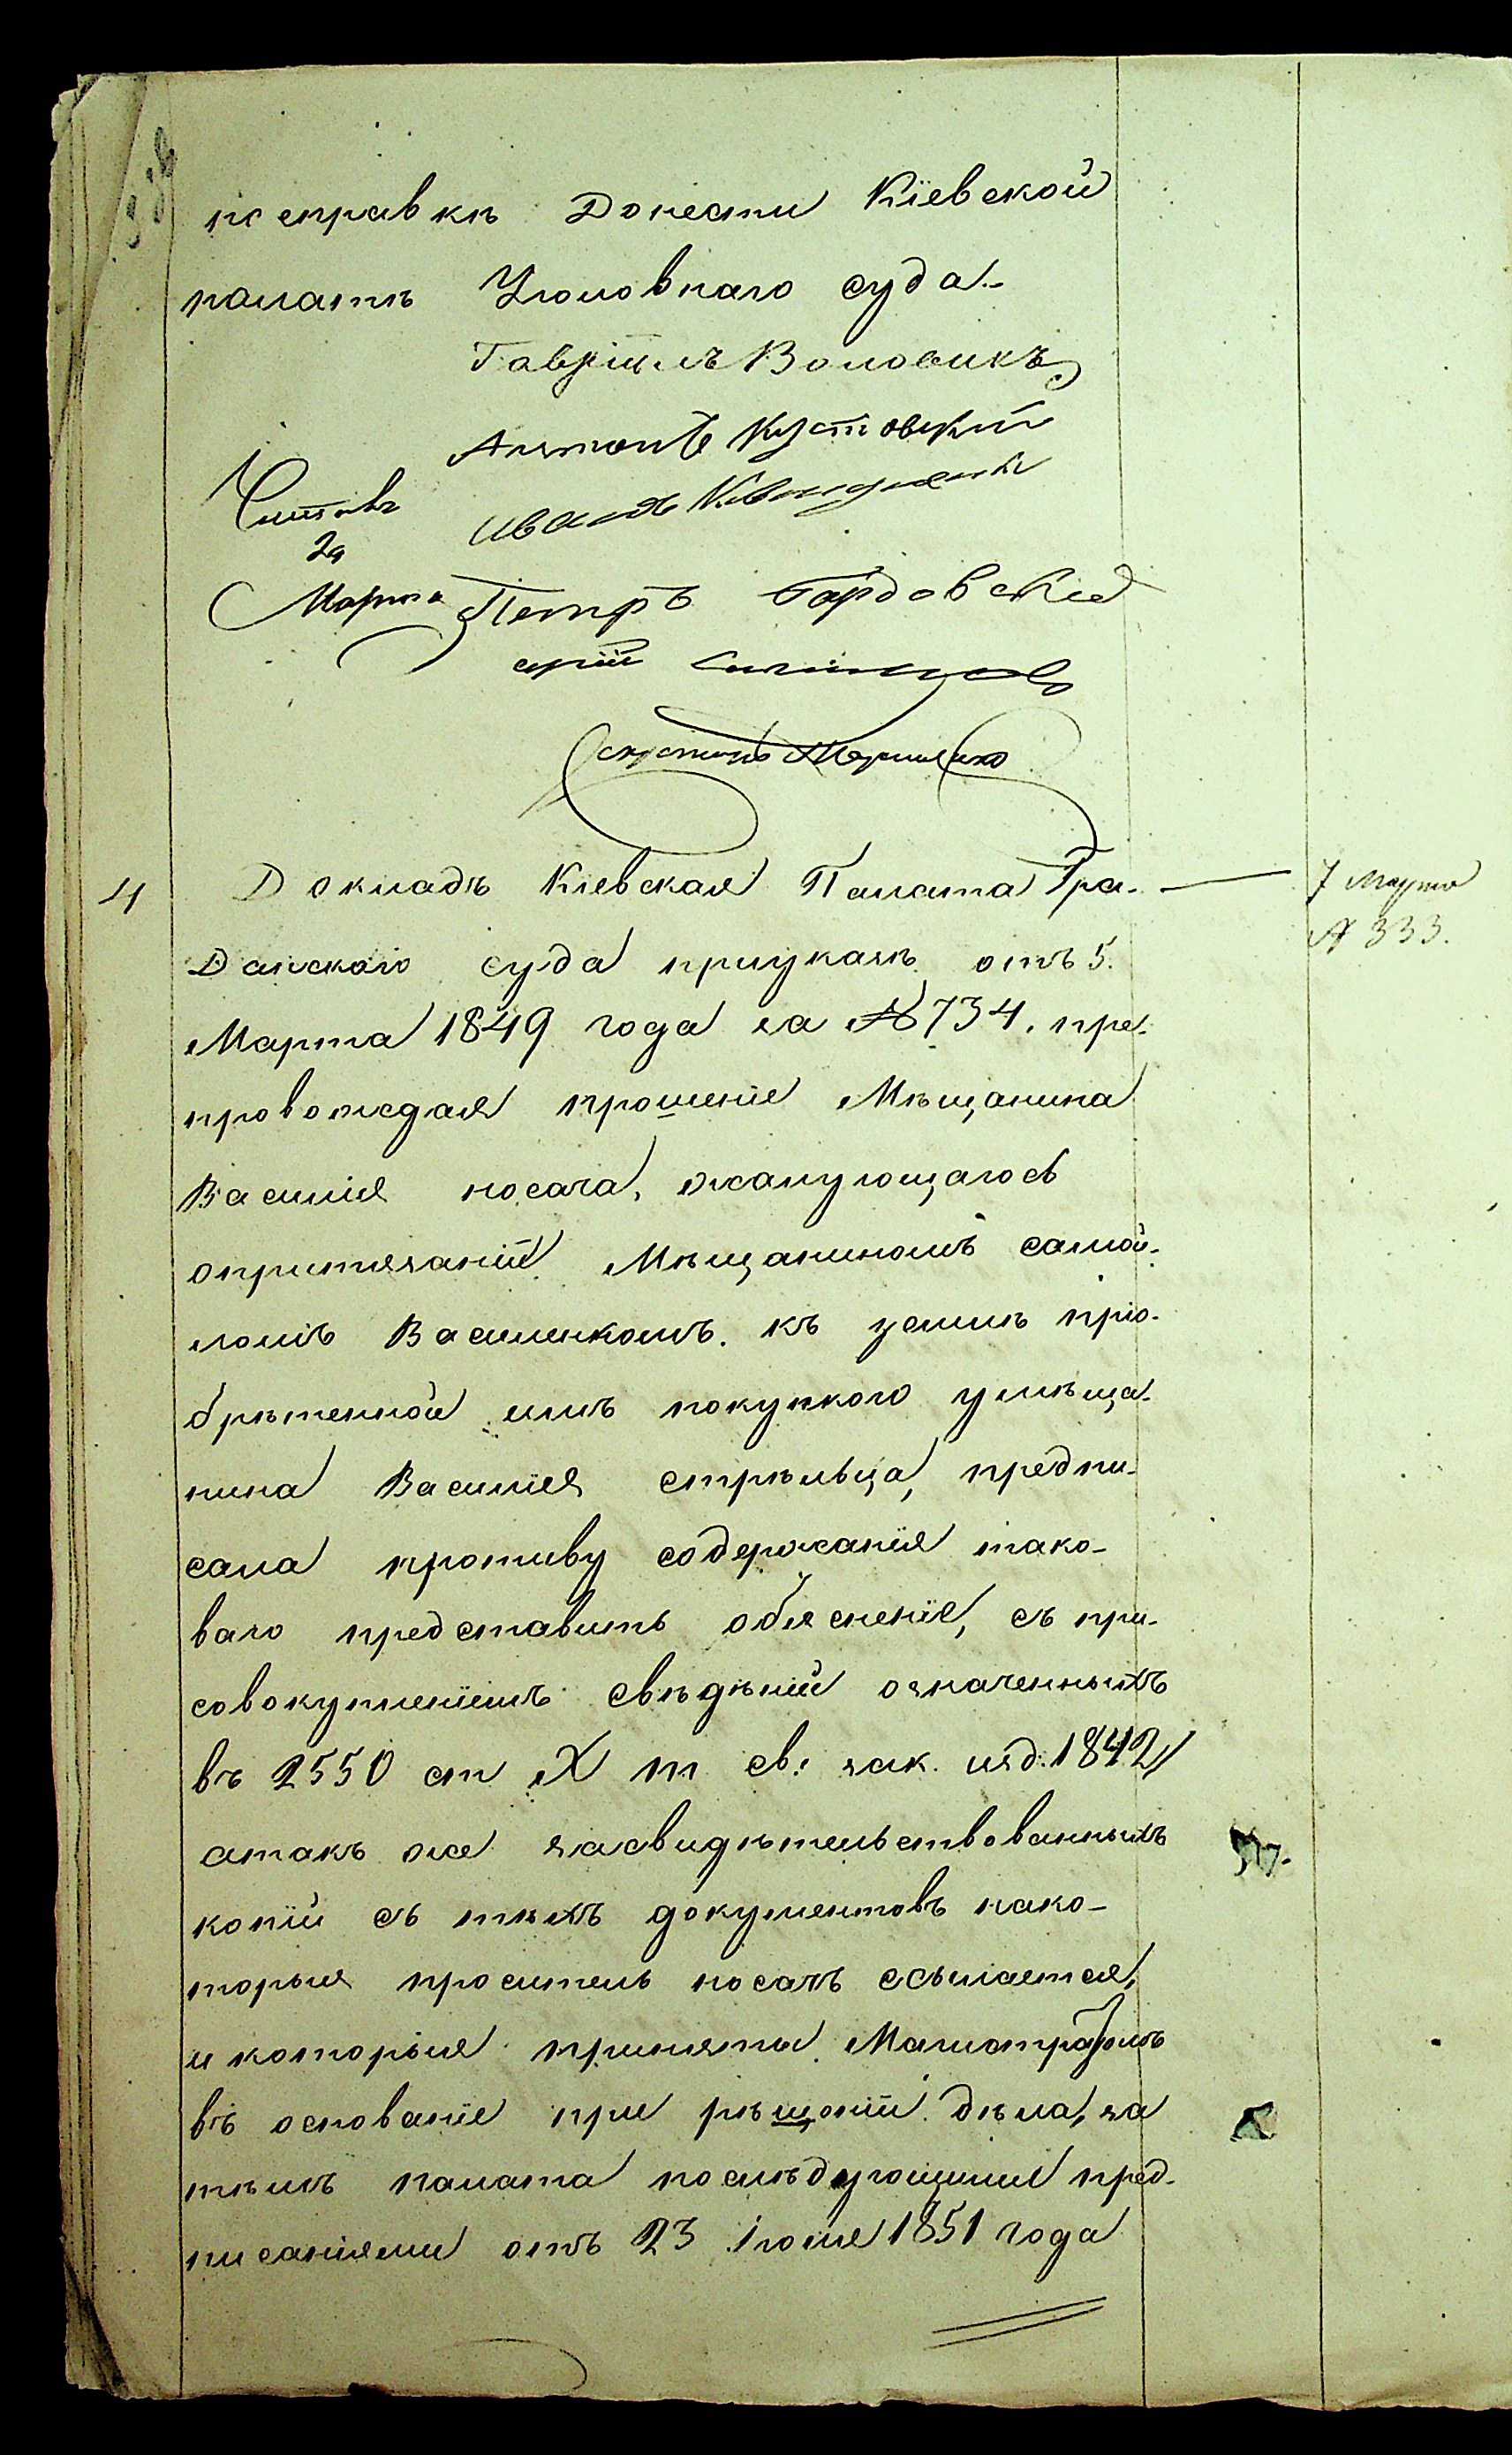 по справкѣ Донести Кіевской
палатѣ Уголовнаго суда.
Гавріилъ Воловикъ
Антонъ Кустовскій
Читалъ
Иванъ
2а
Марта
Петръ Гардовский
4
Докладъ Кіевская Палата Гра-
7 Марта
№ 333.
Данского суда приуказѣ отъ 5.
Марта 1849 года за №734, пре-
провождая прошеніе Мѣщанина
Василія носача, жалующагось
опритязаніи Мѣщаниномъ самой-
ломъ Василенкомъ. къ землѣ пріо-
брѣтенной имъ покупкого умѣща-
нина Василія стрѣльца, предпи-
сала противу содержанія тако-
ваго представить объясненіе, съ при-
совокупленіемъ свѣдѣній означенныхъ
въ 2550 ст X т св: зак. изд. 1842,
атакъ же засвидѣтельствованныхъ
копій съ тѣхъ документовъ нако-
торыя проситель носачъ ссылается,
и которыя приняты Магистратомъ
въ основаніе при рѣшеніи дѣла, за
тѣмъ палата послѣдующими пред-
писаніями отъ 23 Іюля 1851 года